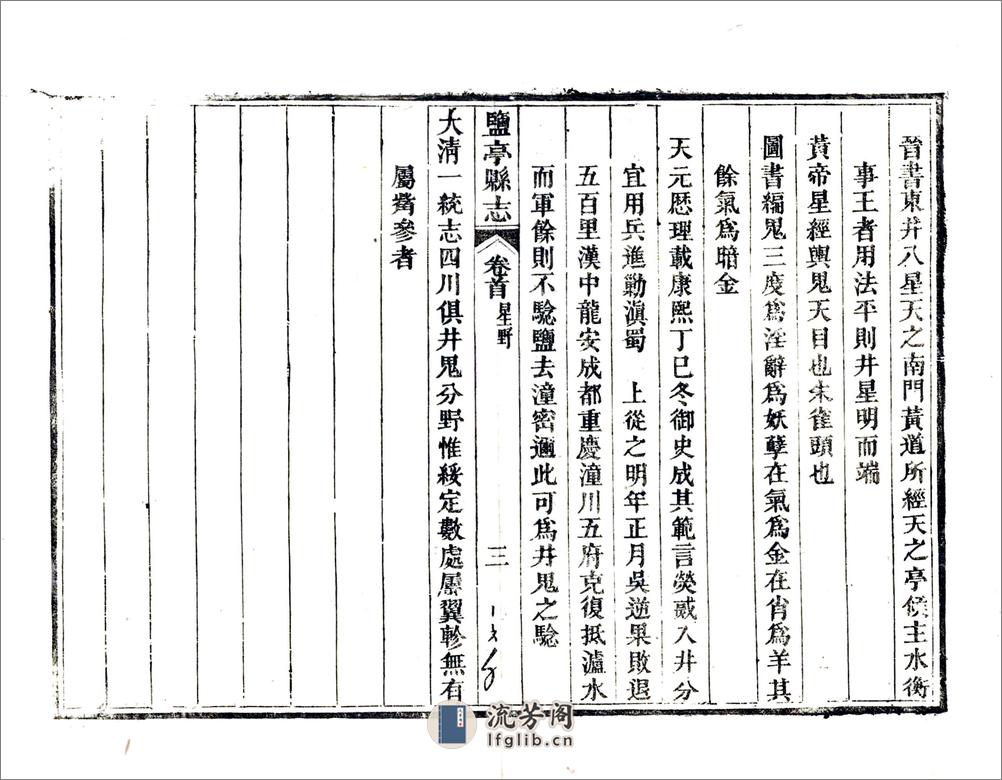 晉書東井八星天之南門黃道所經天之亭候主水衡
事王者用法平則井星明而端
黃帝星經輿鬼天目也朱雀頭也
圖書編鬼三度爲淫辭爲妖孽在氣爲金在肖爲羊其
餘氣爲暗金
天元厯理載康熙丁巳冬御史成其範言熒惑入井分
宜用兵進勦滇蜀　上從之明年正月吳逆果敗退
五百里漢中龍安成都重慶潼川五府克復抵瀘水
而軍餘則不騐鹽去潼密邇此可爲井鬼之騐
鹽亭縣志 卷首 星野 三
大清一統志四川俱井鬼分野惟綏定數處屬翼軫無有
屬觜參者
流芳阁
lfglib.cn